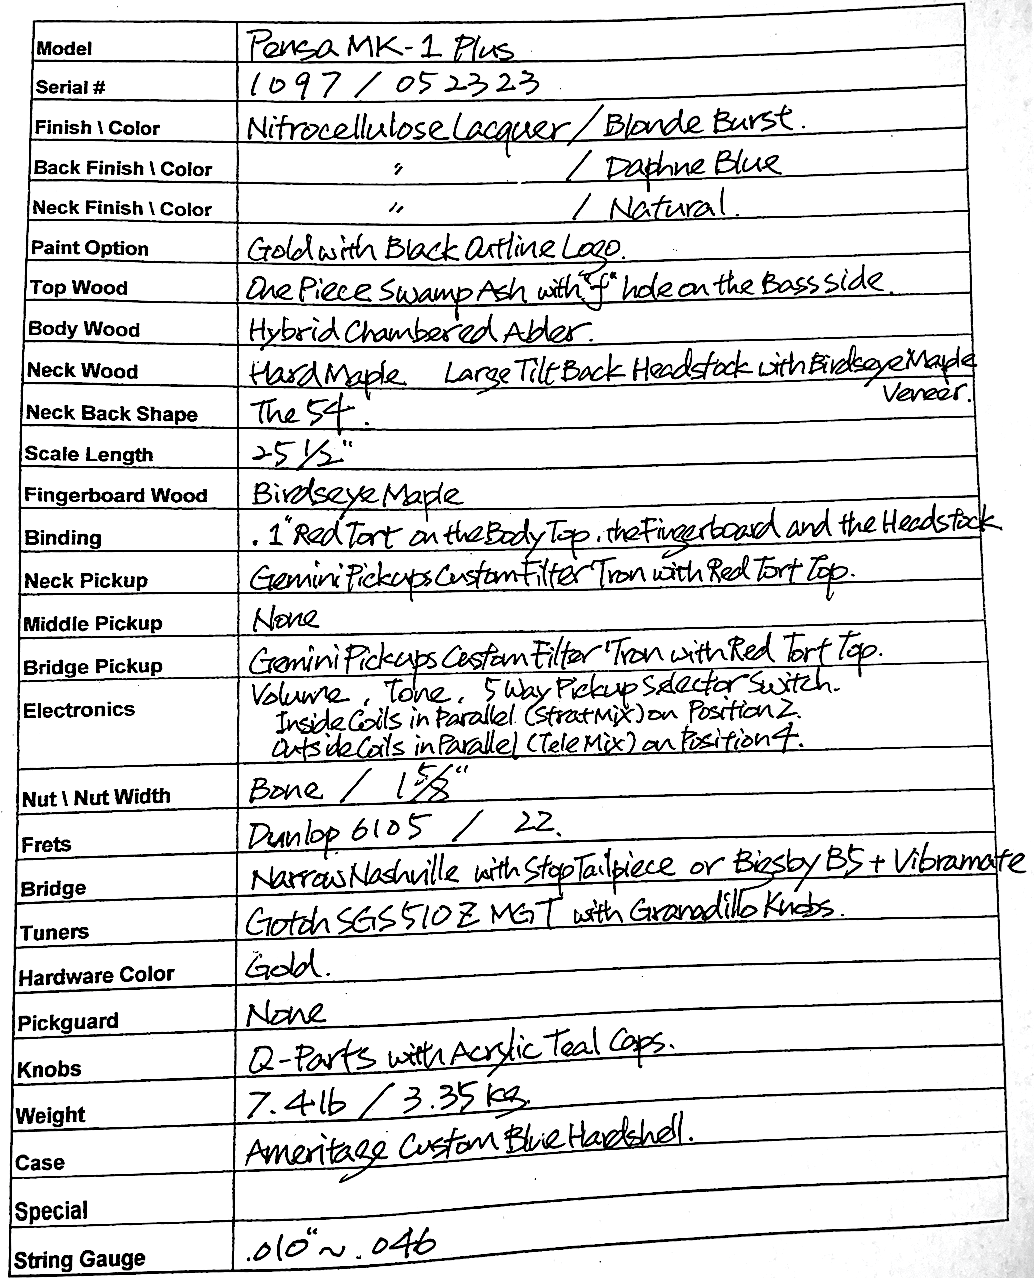 Model Pensa MK-1 Plus
Serial # 1097 / 052323
Finish \ Color Nitrocellulose Lacquer / Blonde Burst.
Back Finish \ Color " / Daphne Blue
Neck Finish \ Color " / Natural.
Paint Option Gold with Black Outline Logo.
Top Wood One Piece Swamp Ash with "f" hole on the Bass side.
Body Wood Hybrid Chambered Alder.
Neck Wood Hard Maple Large Tilt Back Headstock with Birdseye Maple
Veneer.
Neck Back Shape The 54.
Scale Length 25 1/2"
Fingerboard Wood Birdseye Maple
Binding .1" Red Tort on the Body Top, the Fingerboard and the Headstock
Neck Pickup Gemini Pickups Custom Filter'Tron with Red Tort Top.
Middle Pickup None
Bridge Pickup Gemini Pickups Custom Filter'Tron with Red Tort Top.
Electronics Volume, Tone, 5 Way Pickup Selector Switch.
Inside Coils in Parallel (Strat Mix) on Position 2.
Outside Coils in Parallel (Tele Mix) on Position 4.
Nut \ Nut Width Bone / 1 5/8"
Frets Dunlop 6105 / 22.
Bridge Narrow Nashville with Stop Tailpiece or Bigsby B5 + Vibramate
Tuners Gotoh SGS510Z MGT with Granadillo Knobs.
Hardware Color Gold.
Pickguard None
Knobs Q-Parts with Acrylic Teal Caps.
Weight 7.4 lb / 3.35 kg.
Case Ameritage Custom Blue Hardshell.
Special
String Gauge .010" ~ .046